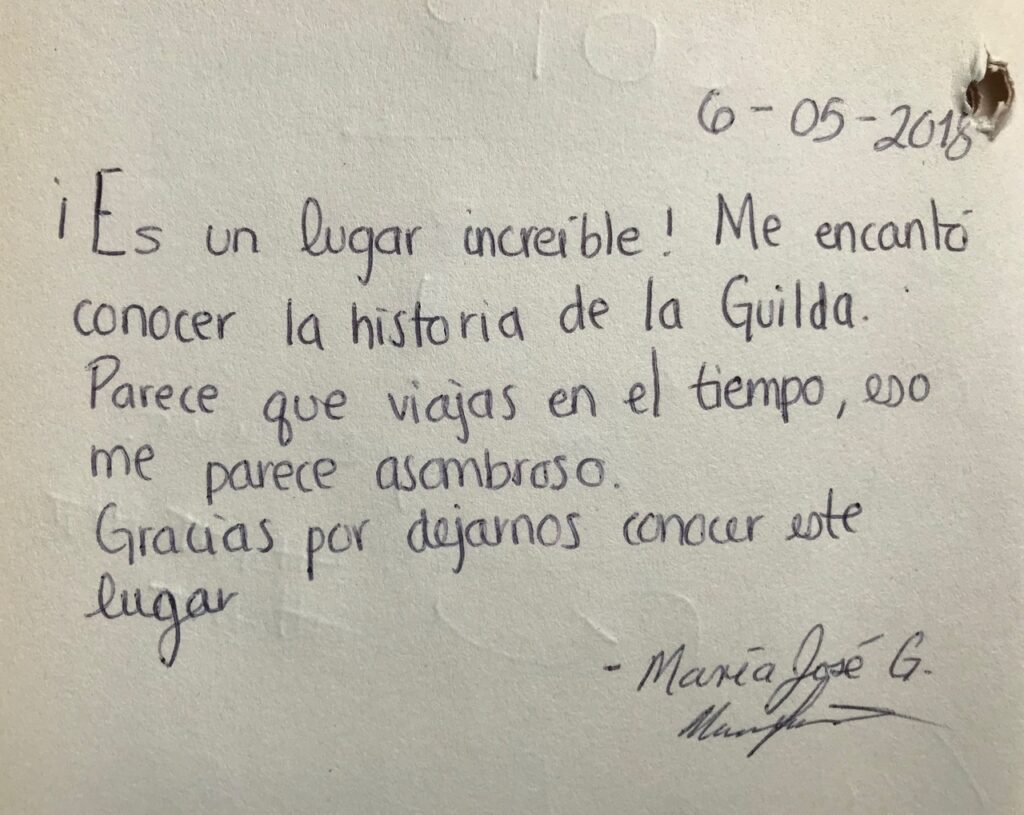 6-05-2018
¡Es un lugar increíble! Me encantó
conocer la historia de la Guilda.
Parece que viajas en el tiempo, eso
me parece asombroso.
Gracias por dejarnos conocer este
lugar
- María José G.